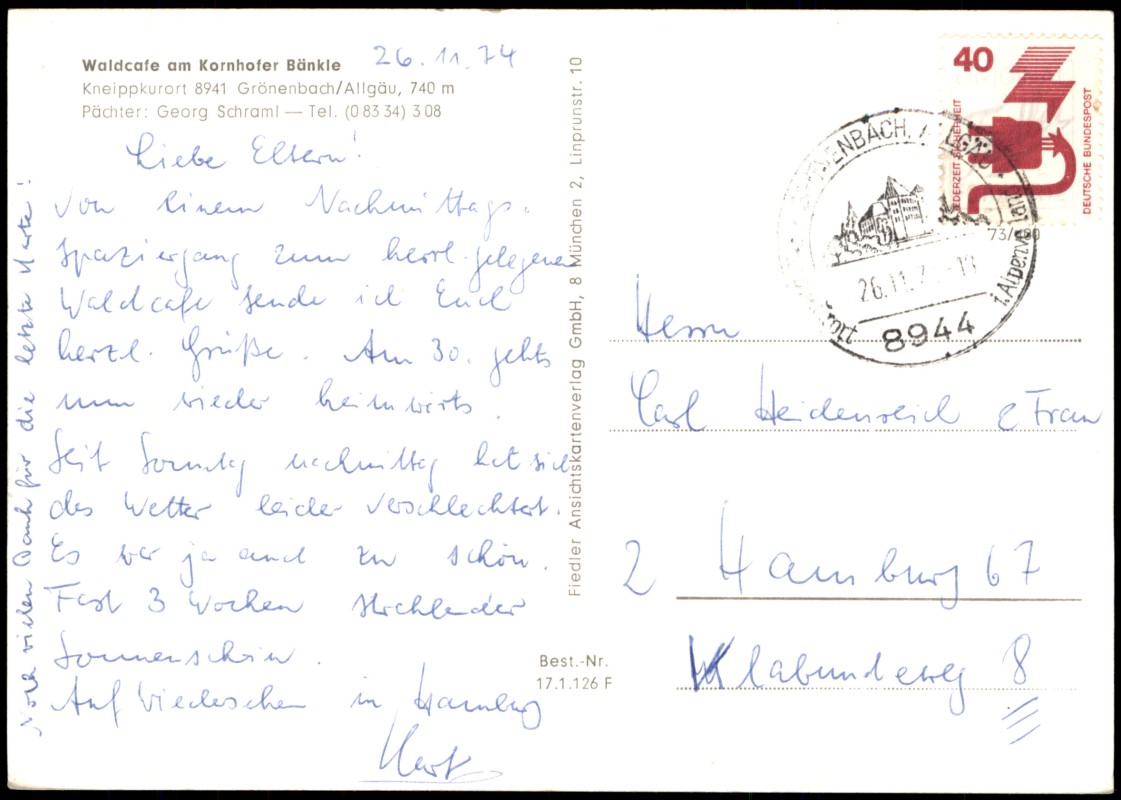 Waldcafe am Kornhofer Bänkle
Kneippkurort 8941 Grönenbach/Allgäu, 740 m
Pächter: Georg Schraml — Tel. (0 83 34) 3 08
26.11.74
Liebe Eltern!
Von einem Nachmittags-
spaziergang zum herrl. gelegenen
Waldcafe sende ich Euch
herzl. Grüße. Am 30. gehts
nun wieder heimwärts.
Seit Sonntag nachmittag hat sich
das Wetter leider verschlechtert.
Es war ja auch zu schön.
Fast 3 Wochen strahlender
Sonnenschein.
Auf Wiedersehen in Hamburg
Noch vielen Dank für die letzte Karte!
Fiedler Ansichtskartenverlag GmbH, 8 München 2, Linprunstr. 10
Best.-Nr.
17.1.126 F
40
JEDERZEIT SICHERHEIT
DEUTSCHE BUNDESPOST
GRÖNENBACH, ALLGÄU
26.11.
8944
Herrn
Carl Heidenreich & Frau
2 Hamburg 67
Klabundeweg 8